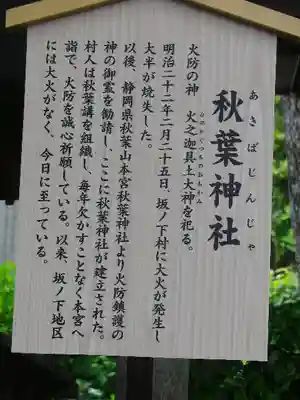 あきばじんじゃ
秋葉神社
火防の神 火之迦具土大神を祀る。
ひのかぐつちのおおかみ
明治二十二年二月二十五日、坂ノ下村に大火が発生し
大半が焼失した。
以後、静岡県秋葉山本宮秋葉神社より火防鎮護の
神の御霊を勧請し、ここに秋葉神社が建立された。
村人は秋葉講を組織し、毎年欠かすことなく本宮へ
詣で、火防を誠心祈願している。以来、坂ノ下地区
には大火がなく、今日に至っている。